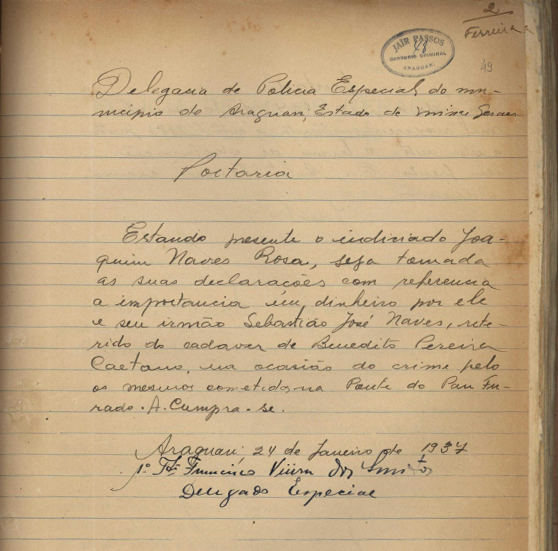 2
Ferreira
JAIR PASSOS
28
ESCRIVÃO CRIMINAL
ARAGUARI
49
Delegacia de Policia Especial do mu-
nicipio de Araguari, Estado de Minas Geraes
Portaria
Estando presente o indiciado Joa-
quim Naves Rosa, seja tomada
as suas declarações com referencia
a importancia em dinheiro por ele
e seu irmão Sebastião José Naves, rete-
rido do cadaver de Benedito Pereira
Caetano, na ocasião do crime pelo
os mesmos cometido na Ponte do Pau Fu-
rado. A. Cumpra-se.
Araguari, 24 de Janeiro de 1937
1º Te Francisco Vieira dos Santos
Delegado Especial